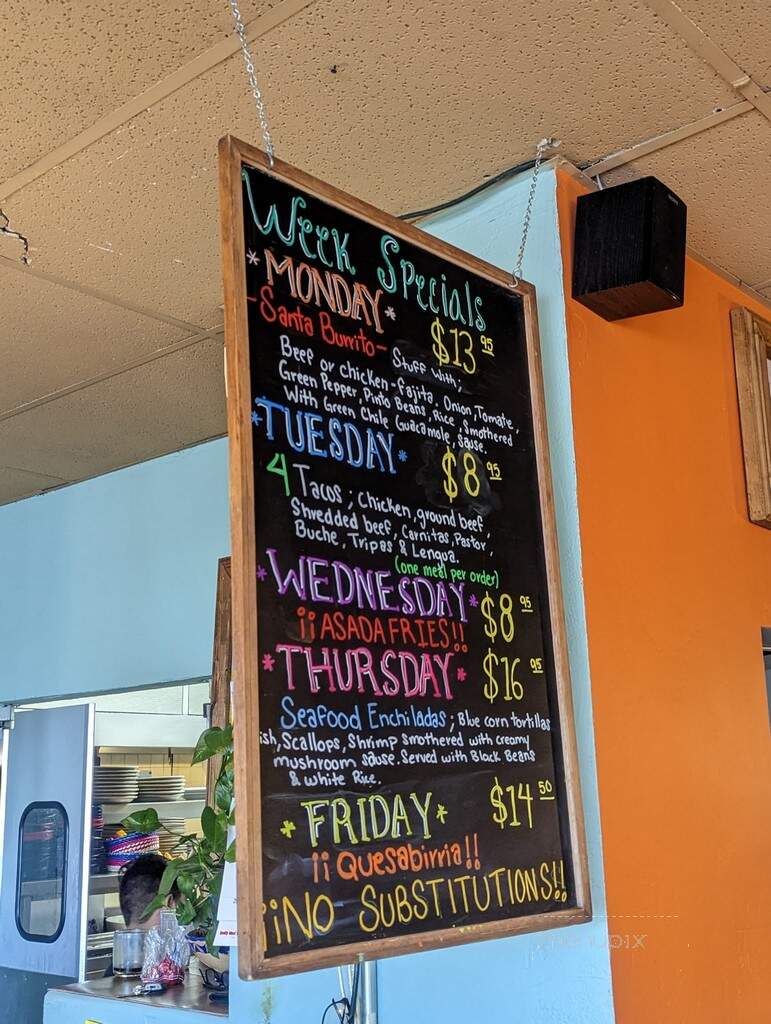 Week Specials
*MONDAY*
-Santa Burrito- $13 95
Stuff With;
Beef or chicken-fajita, Onion, Tomate,
Green Pepper, Pinto Beans, Rice, Smothered
With Green Chile Guacamole, Sause.
*TUESDAY* $8 95
4 Tacos; Chicken, ground beef,
Shredded beef, Carnitas, Pastor,
Buche, Tripas & Lengua.
(one meal per order)
*WEDNESDAY* $8 95
¡¡ASADA FRIES!!
*THURSDAY* $16 95
Seafood Enchiladas; Blue corn tortillas
ish, Scallops, Shrimp smothered with creamy
mushroom sause. Served with Black Beans
& white Rice.
*FRIDAY* $14 50
¡¡Quesabirria!!
¡¡NO SUBSTITUTIONS!!